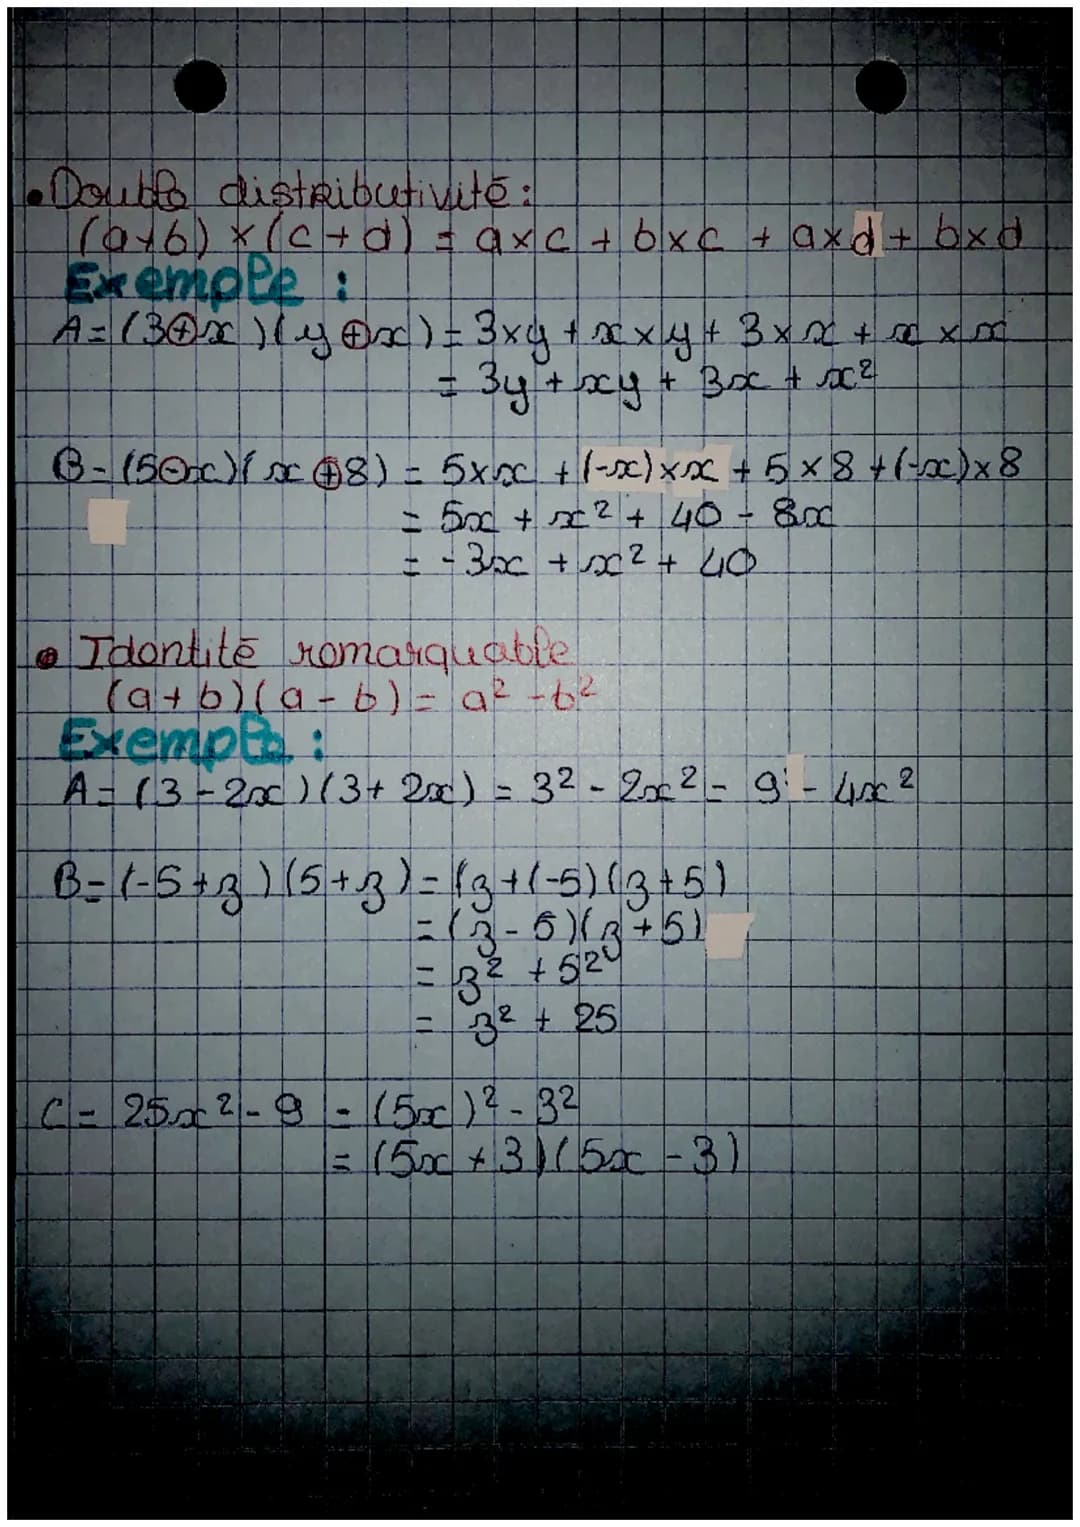 • Double distributivité :
(a+b) × (c+d) = a×c + b×c + a×d + b×d
Exemple :
A = (3+x)(y+x) = 3×y + x×y + 3×x + x×x
= 3y + xy + 3x + x²
B = (5-x)(x+8) = 5×x + (-x)×x + 5×8 + (-x)×8
= 5x + x² + 40 - 8x
= -3x + x² + 40
• Identité remarquable
(a+b)(a-b) = a² - b²
Exemple :
A = (3-2x)(3+2x) = 3² - 2x² = 9 - 4x²
B = (-5+z)(5+z) = (z+(-5)(z+5)
= (z-5)(z+5)
= z² + 5²
= z² + 25
C = 25x² - 9 = (5x)² - 3²
= (5x+3)(5x-3)